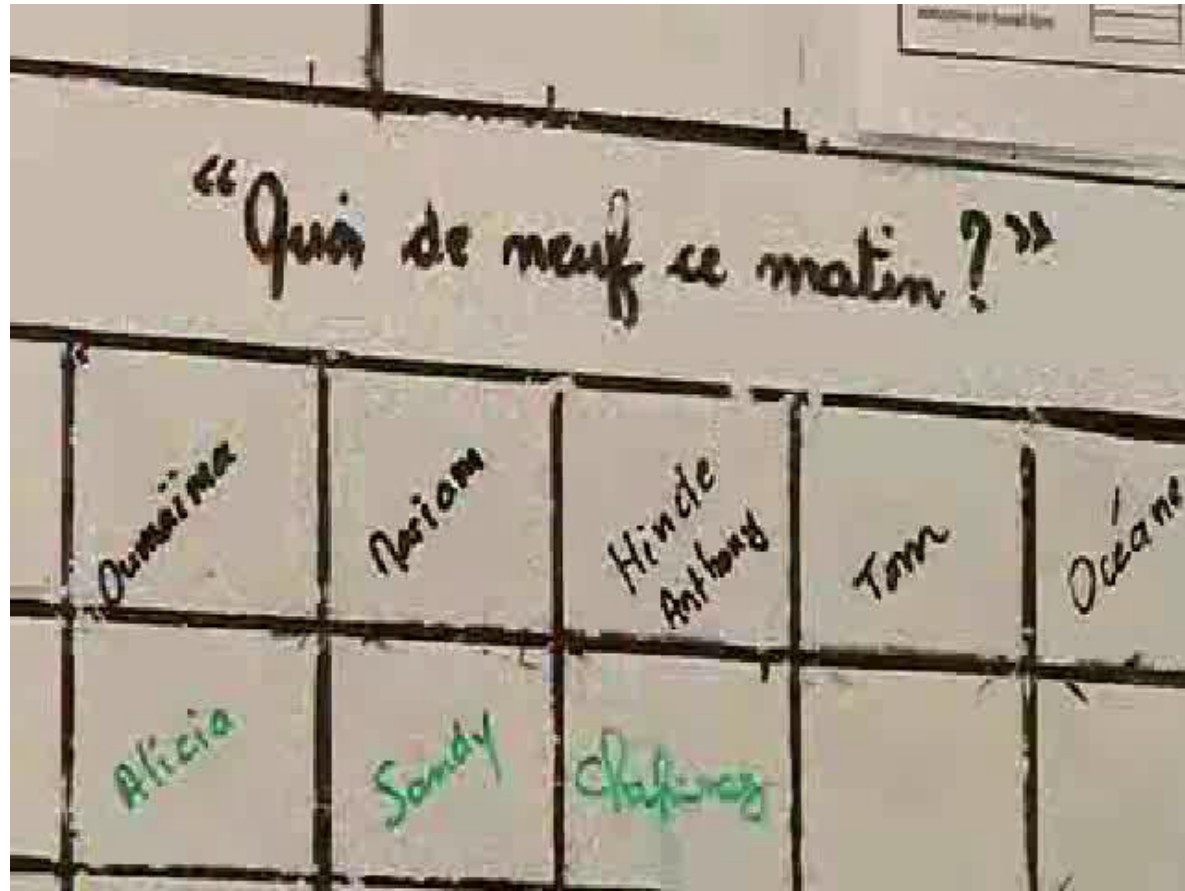 “Quoi de neuf ce matin ?”
Oumaïma
Mariam
Hinde
Anthony
Tom
Océane
Alicia
Sandy